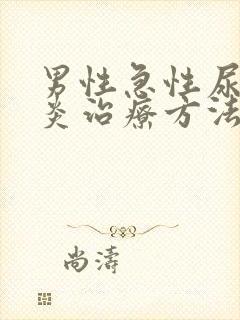 男性急性尿
炎治療方法
尚濤